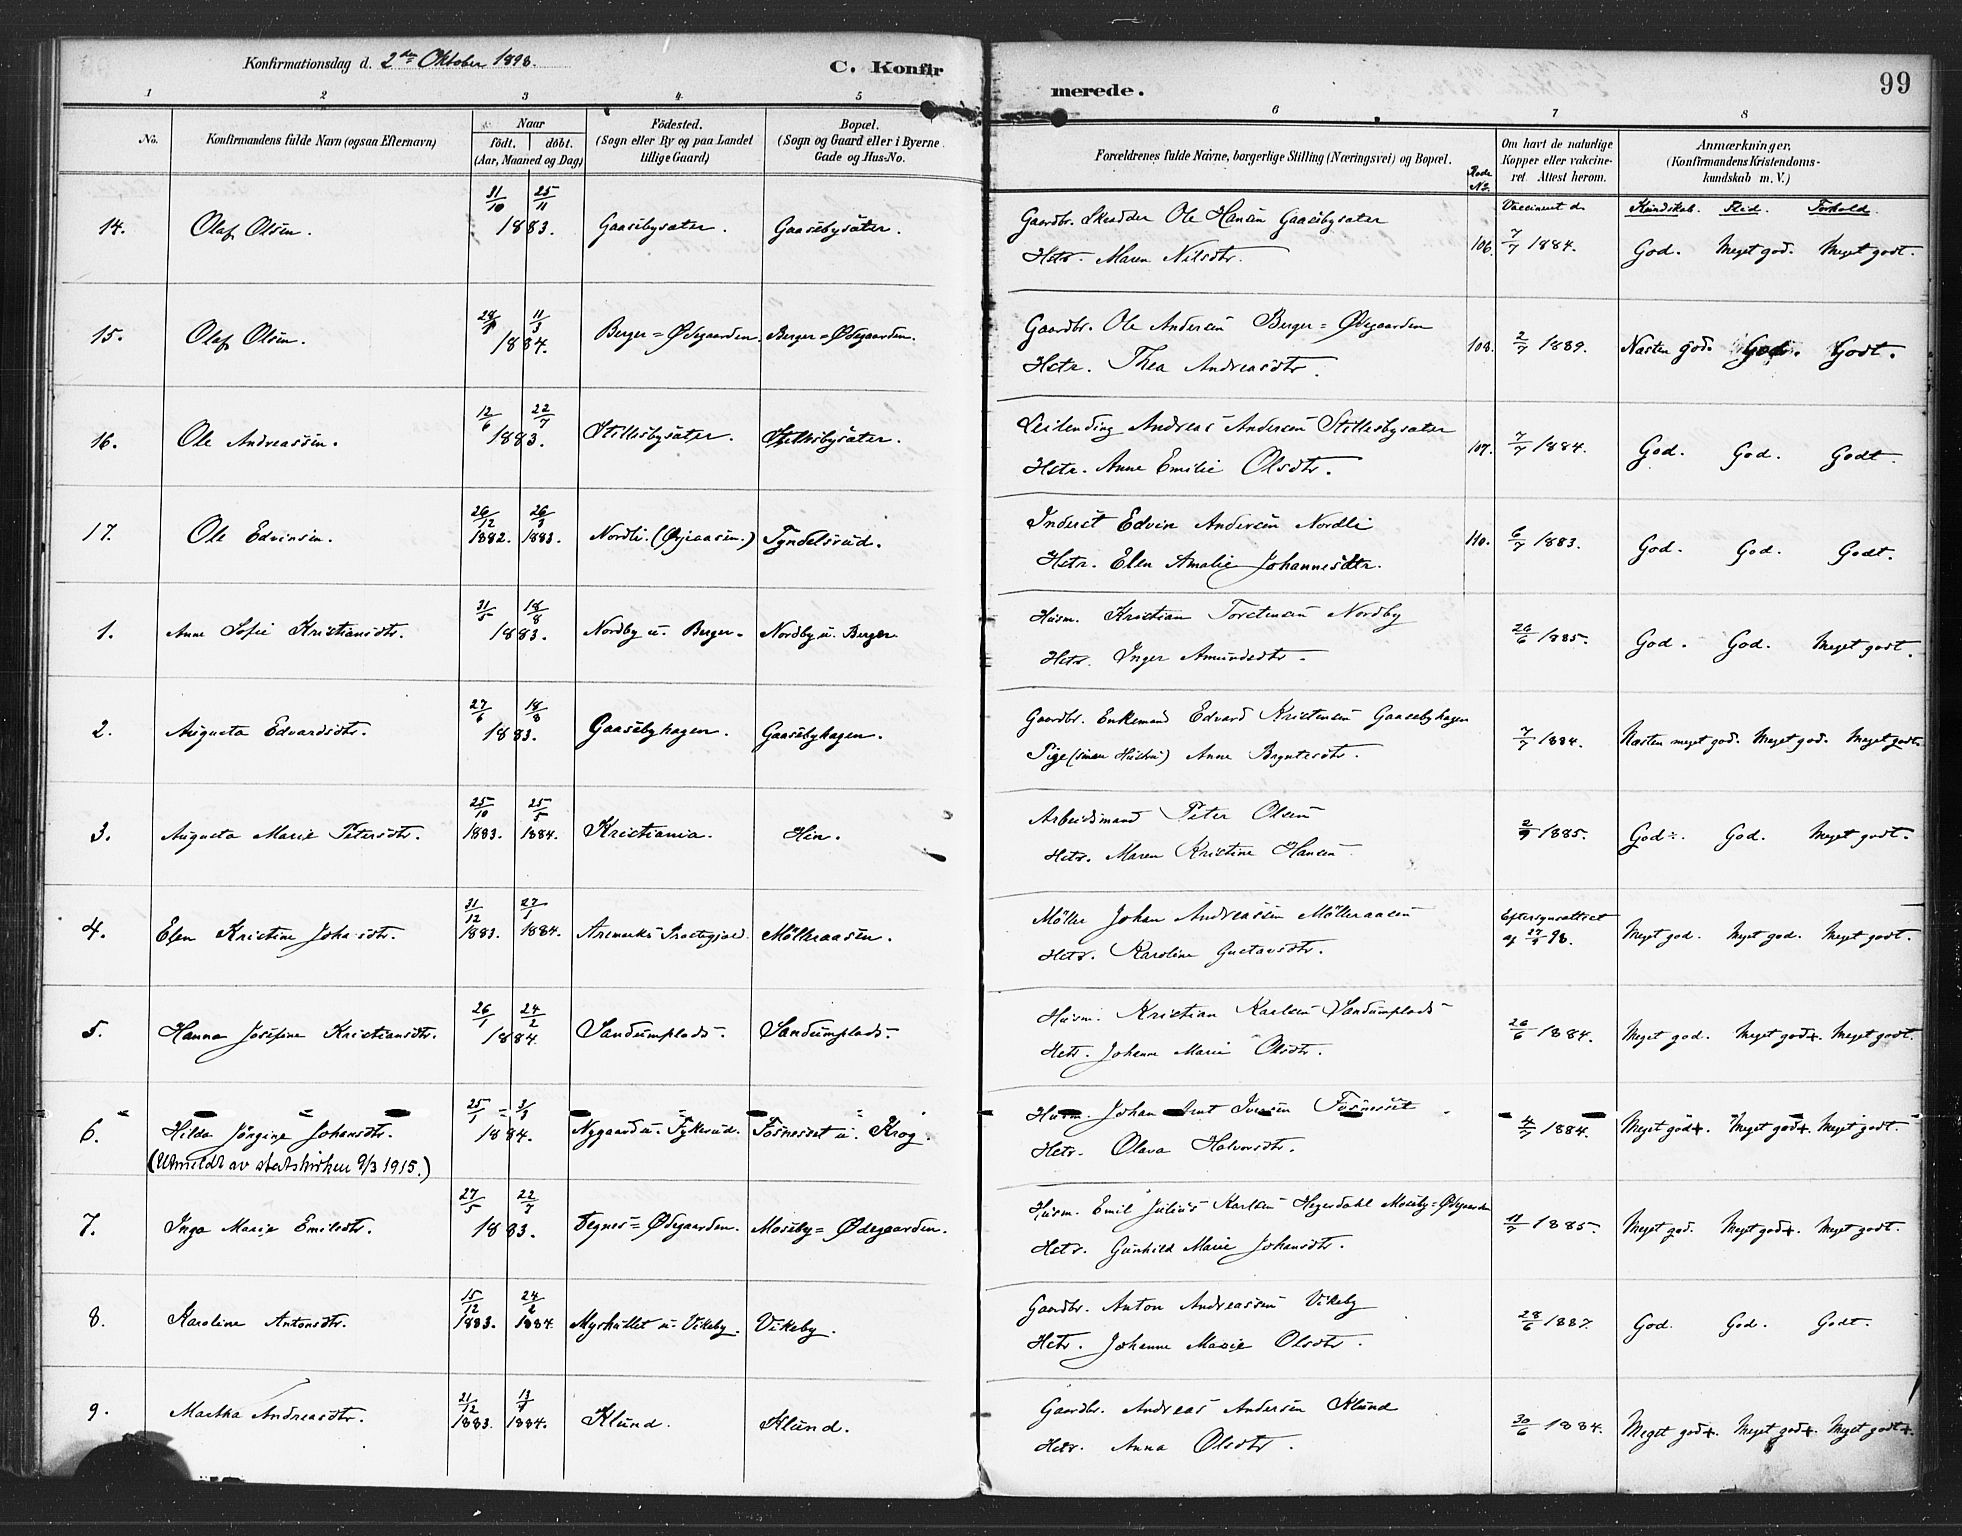 Konfirmationsdag d. 2den Oktober 1898.
C. Konfirmerede.
99
1 2 3 4 5 6 7 8
No.
Konfirmandens fulde Navn (ogsaa Efternavn)
Naar
født. døbt.
(Aar, Maaned og Dag)
Fødested.
(Sogn eller By og paa Landet
tillige Gaard)
Bopæl.
(Sogn og Gaard eller i Byerne
Gade og Hus-No.
Forældrenes fulde Navne, borgerlige Stilling (Næringsvei) og Bopæl.
Rode
No.
Om havt de naturlige
Kopper eller vakcine-
ret. Attest herom.
Anmærkninger,
(Konfirmandens Kristendoms-
kundskab m. V.)
Vaccineret d. Kundskab. Flid. Forhold.
14. Olaf Olsen. 31/10 25/11 1883. Gaasebysæter. Gaasebysæter. Gaardbr. Skrædder Ole Hansen Gaasebysæter
Hstr. Maren Nilsdtr. 106. 7/7 1884. God. Meget god. Meget godt.
15. Olaf Olsen. 11/3 1884. Berger=Ødegaarden. Berger=Ødegaarden. Gaardbr. Ole Andersen Berger=Ødegaarden
Hstr. Thea Andreasdtr. 108. 2/7 1889. Næsten god. God. Godt.
16. Ole Andreassen. 12/6 22/7 1883. Stillesbysæter. Stillesbysæter. Leilending Andreas Andersen Stillesbysæter
Hstr. Anne Emilie Olsdtr. 107. 7/7 1884. God. God. Godt.
17. Ole Edvinsen. 26/12 1882. 26/3 1883. Nordli. (Ørjeaasen.) Tyndelsrud. Inderst Edvin Andersen Nordli
Hstr. Elen Amalie Johannesdtr. 110. 6/7 1883. God. God. Godt.
1. Anne Sofie Kristiansdtr. 31/5 18/8 1883. Nordby u. Berger. Nordby u. Berger Husm. Kristian Torstensen Nordby
Hstr. Inger Amundsdtr. 26/6 1885. God. God. Meget godt.
2. Augusta Edvardsdtr. 27/6 18/8 1883. Gaasebyhagen. Gaasebyhagen. Gaardbr. Enkemand Edvard Kristensen Gaasebyhagen
Pige (senere Hustru) Anne Bryntesdtr. 7/7 1884. Næsten meget god. Meget god. Meget godt.
3. Augusta Marie Petersdtr. 25/10 1883. 25/5 1884. Kristiania. Hin. Arbeidsmand Peter Olsen
Hstr. Maren Kristine Hansen. 2/9 1885. God÷. God. Meget godt.
4. Elen Kristine Johansdtr. 31/12 1883. 27/1 1884. Aremarks Præstegjæld. Mølleraasen. Møller Johan Andreassen Mølleraasen
Hstr. Karoline Gustavsdtr. Eftersynsattest
af 27/9 98. Meget god. Meget god. Meget godt.
5. Hanna Josefine Kristiansdtr. 26/1 24/2 1884. Sandumplads. Sandumplads. Husm. Kristian Karlsen Sandumplads
Hstr. Johanne Marie Olsdtr. 26/6 1884. Meget god. Meget god+. Meget godt.
6. Hilda Jørgine Johansdtr. 25/1 3/3 1884. Nygaard u. Fykerud. Fosnesset u. Krog. Husm. Johan Arnt Iversen Fosnesset
(Utmeldt av statskirken 9/3 1915.) Hstr. Olava Halvorsdtr. 4/7 1884. Meget god+. Meget god+. Meget godt.
7. Inga Marie Emilsdtr. 27/5 22/7 1883. Tegnes=Ødegaarden. Moseby=Ødegaarden. Husm. Emil Julius Karlsen Hegerdahl Moseby=Ødegaarden
Hstr. Gunhild Marie Johansdtr. 11/7 1885. Meget god. Meget god+. Meget godt.
8. Karoline Antonsdtr. 15/12 1883. 24/2 1884. Myshullet u. Vikeby. Vikeby. Gaardbr. Anton Andreassen Vikeby
Hstr. Johanne Marie Olsdtr. 28/6 1887. God. God. Godt.
9. Martha Andreasdtr. 21/12 1883. 1884. Klund. Klund. Gaardbr. Andreas Andersen Klund
Hstr. Anna Olsdtr. 30/6 1884. Meget god+. Meget god+. Meget godt+.